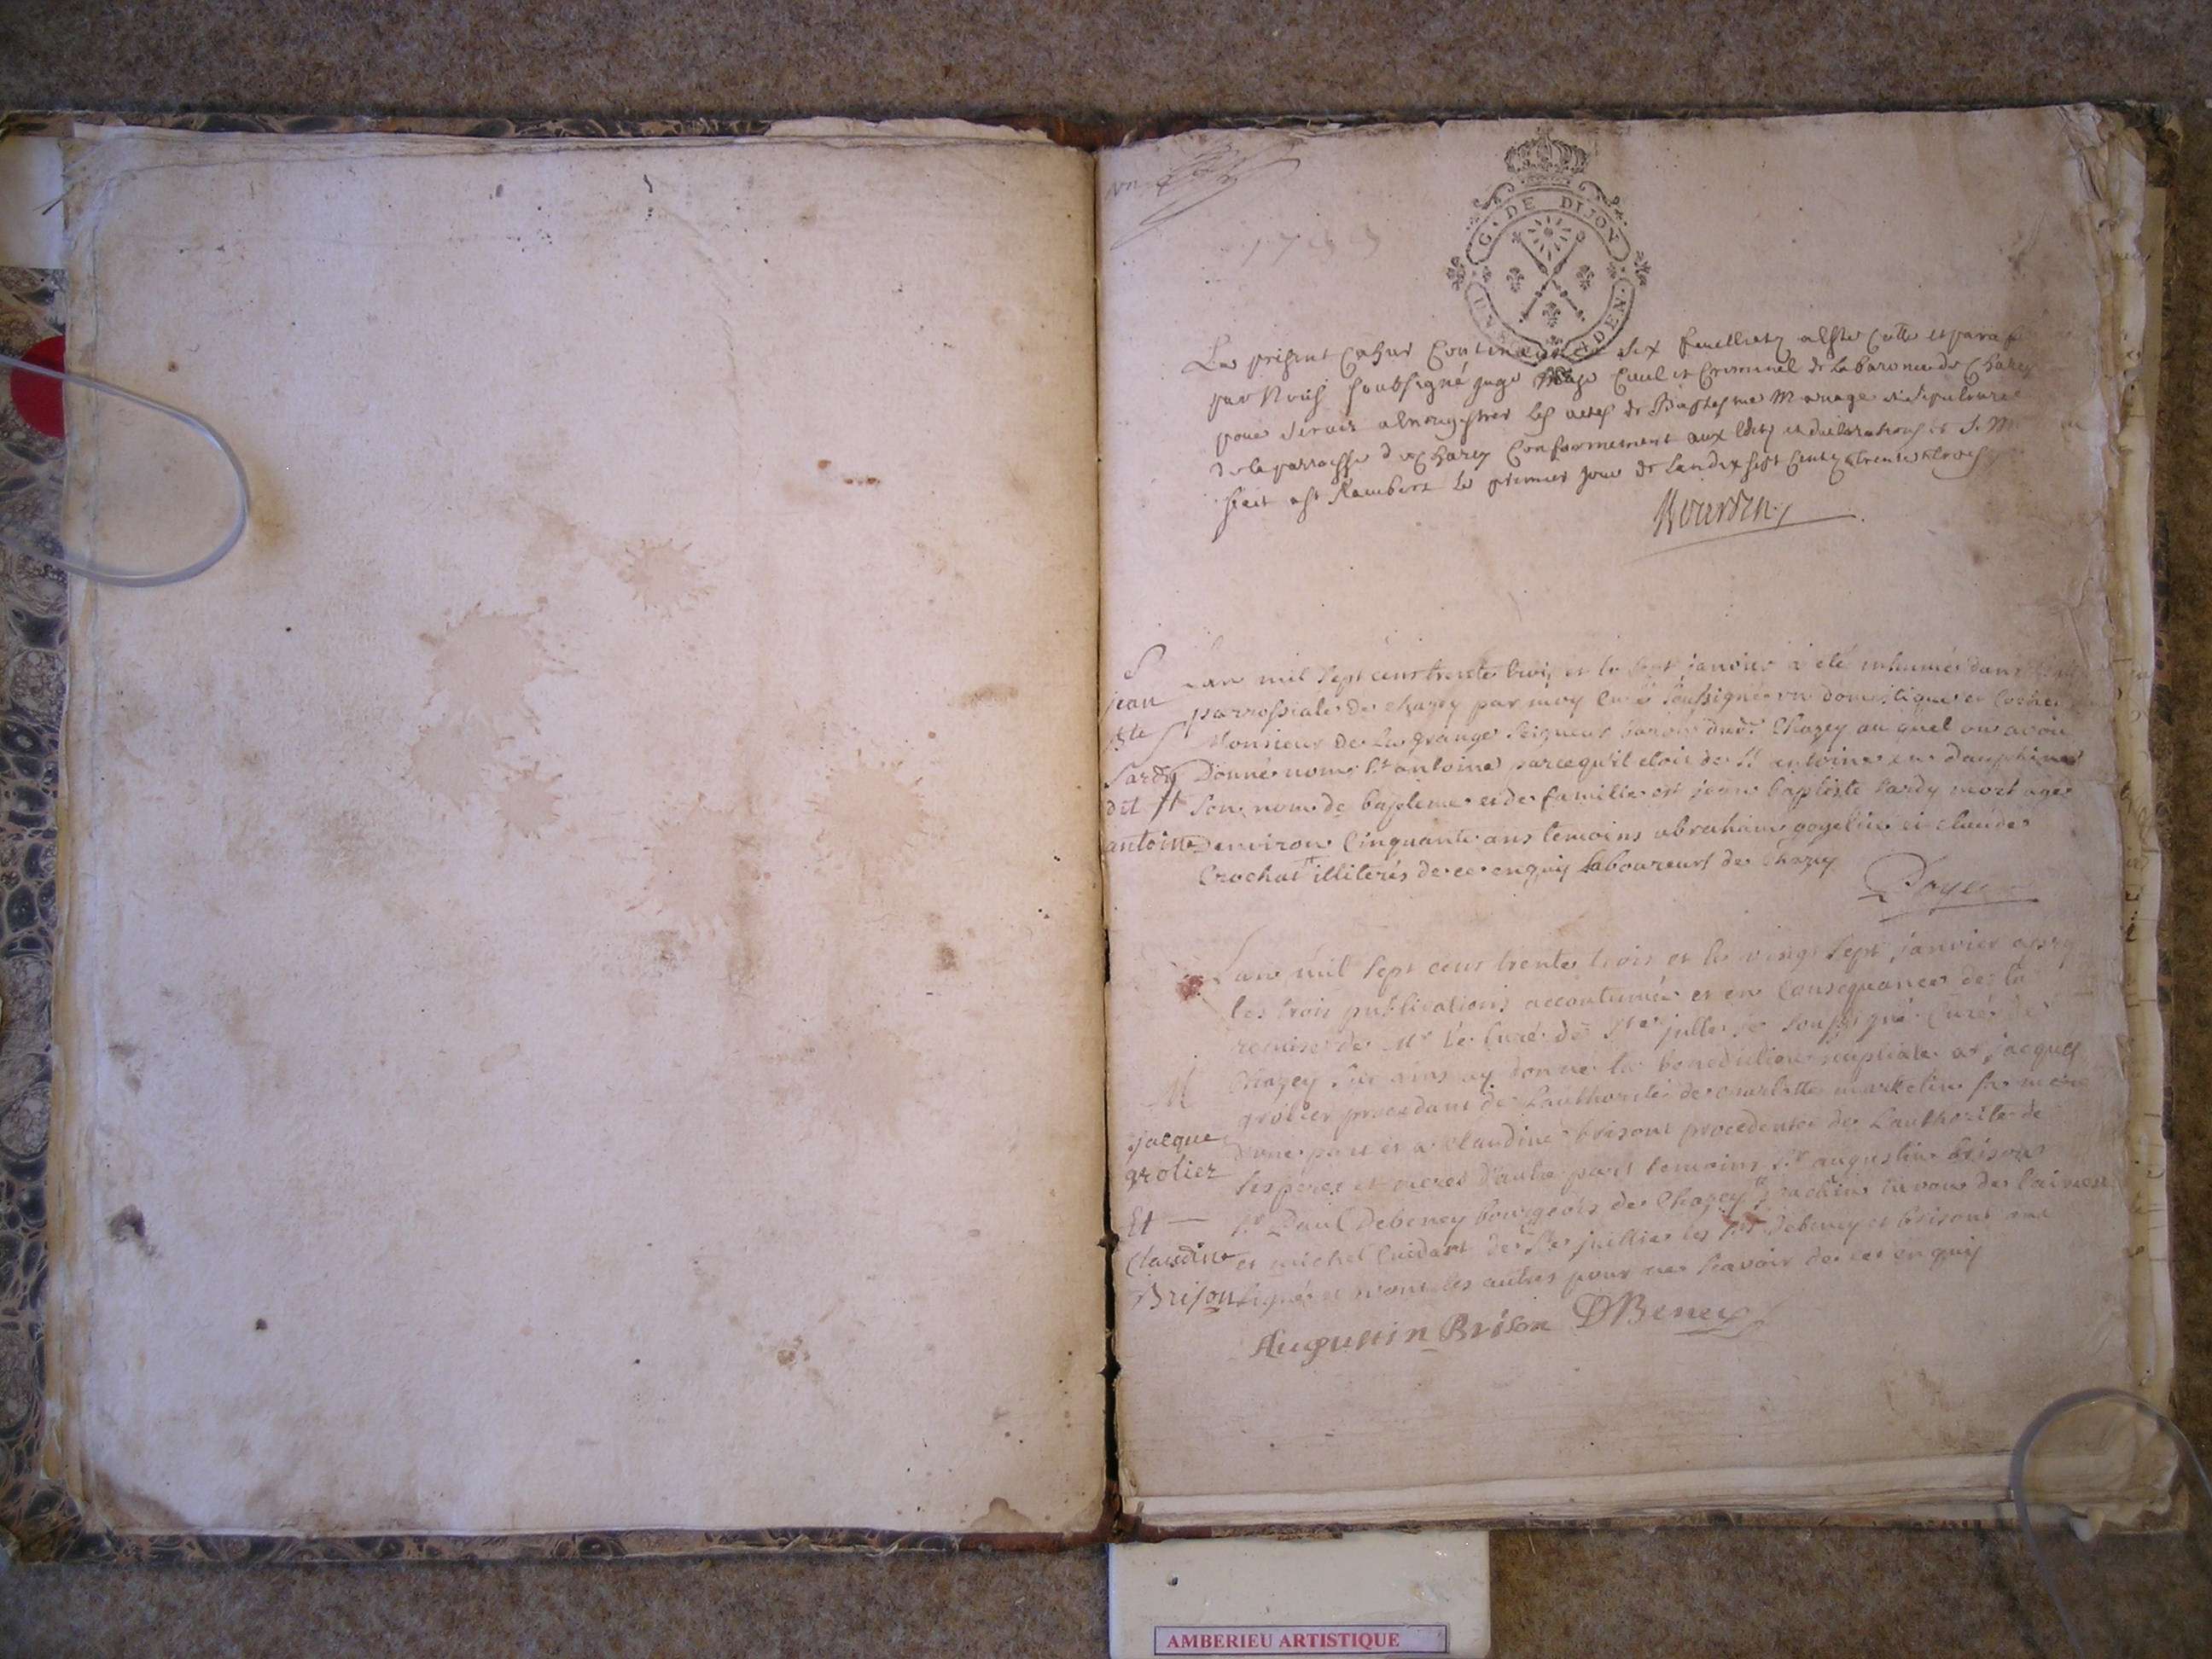 un
1733
G. DE DIJON
Le présent Cahier Contenant six feuillets a esté Cotté et paraf
par Nous soubsigné juge mage Civil et Criminel de la baronnie de Chazey
pour servir a enregistrer les actes de Baptesme Mariage et sepulture
de la parroisse de Chazey Conformement aux Edits et declarations de S. M
fait a St Rambert le premier jour de l'an dix sept cents trente trois
S
jean
Bte
Sardy
dit St
antoine
Lan mil sept cens trente trois et le janvier a été inhumé dans
parrossiale de chazey par moy Curé soussigné un domestique et Cocher
Monsieur De La grange Seigneur baron dud. Chazey au quel on avoit
Donné nom St antoine parcequ'il etoit de St antoine en dauphiné
Son nom de bapteme et de famille est jean baptiste Sardy mort agé
Denviron Cinquante ans temoins abraham goyelin et claude
Crochat illiterés de ce enquis laboureurs de Chazey
M
jacque
grolier
Et
Claudine
Brison
Lan mil sept cens trente trois et le vingt sept janvier apres
les trois publications accoutumées et en Consequance de la
remise de Mr le Curé de Ste julle je soussigné Curé de
Chazey sur ains ay donné la benediction nuptiale a jacques
grolier procedant de Lauthorité de charlotte markelin sa mere
Dune part et a claudine brison procedente de Lauthorité de
Ses pere et mere d'autre part temoins Sr augustin brison
Sr Paul Debeney bourgeois de Chazey
et michel Cuidant de Ste jullie les Srs Debeney et brison ont
signé et non les autres pour ne scavoir de ce enquis
Augustin Brison DBeney
AMBERIEU ARTISTIQUE